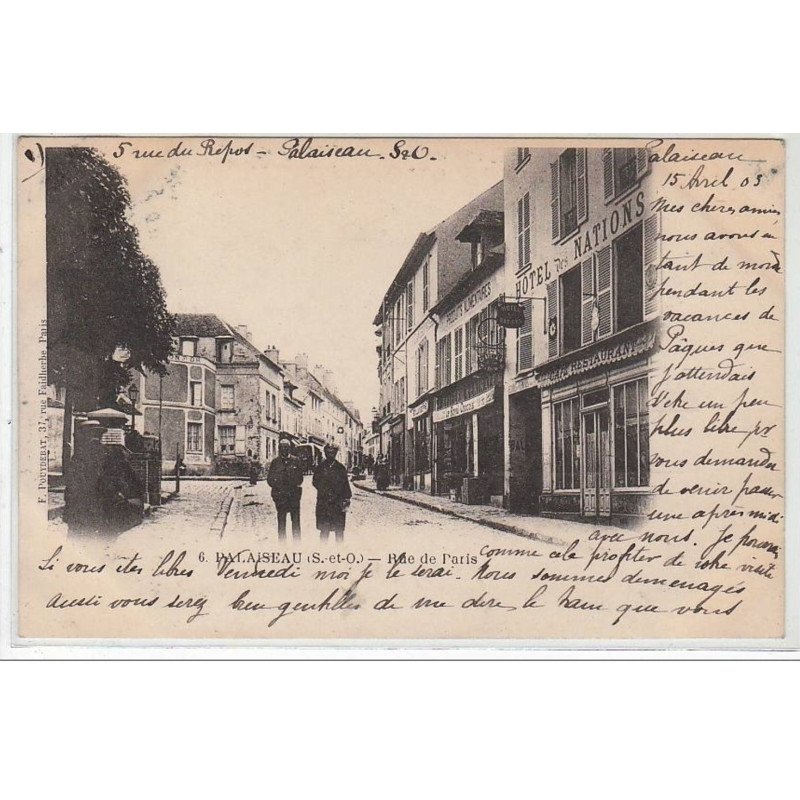 5 rue du Repos - Palaiseau - S&O.
Palaiseau
15 Avril 03
Mes cheres amies
nous avons eu
tant de monde
pendant les
vacances de
Pâques que
j'attendais
d'être un peu
plus libre pr
vous demander
de venir passer
une apres midi
avec nous. Je
comme cela profiter de votre visite
Si vous êtes libres Vendredi moi je le serai. Nous sommes demenagés
aussi vous serez bien gentilles de me dire le train que vous
HÔTEL des NATIONS
CAFÉ RESTAURANT
6. PALAISEAU (S.-et-O.) — Rue de Paris
F. POUYDEBAT, 37, rue Faidherbe, Paris